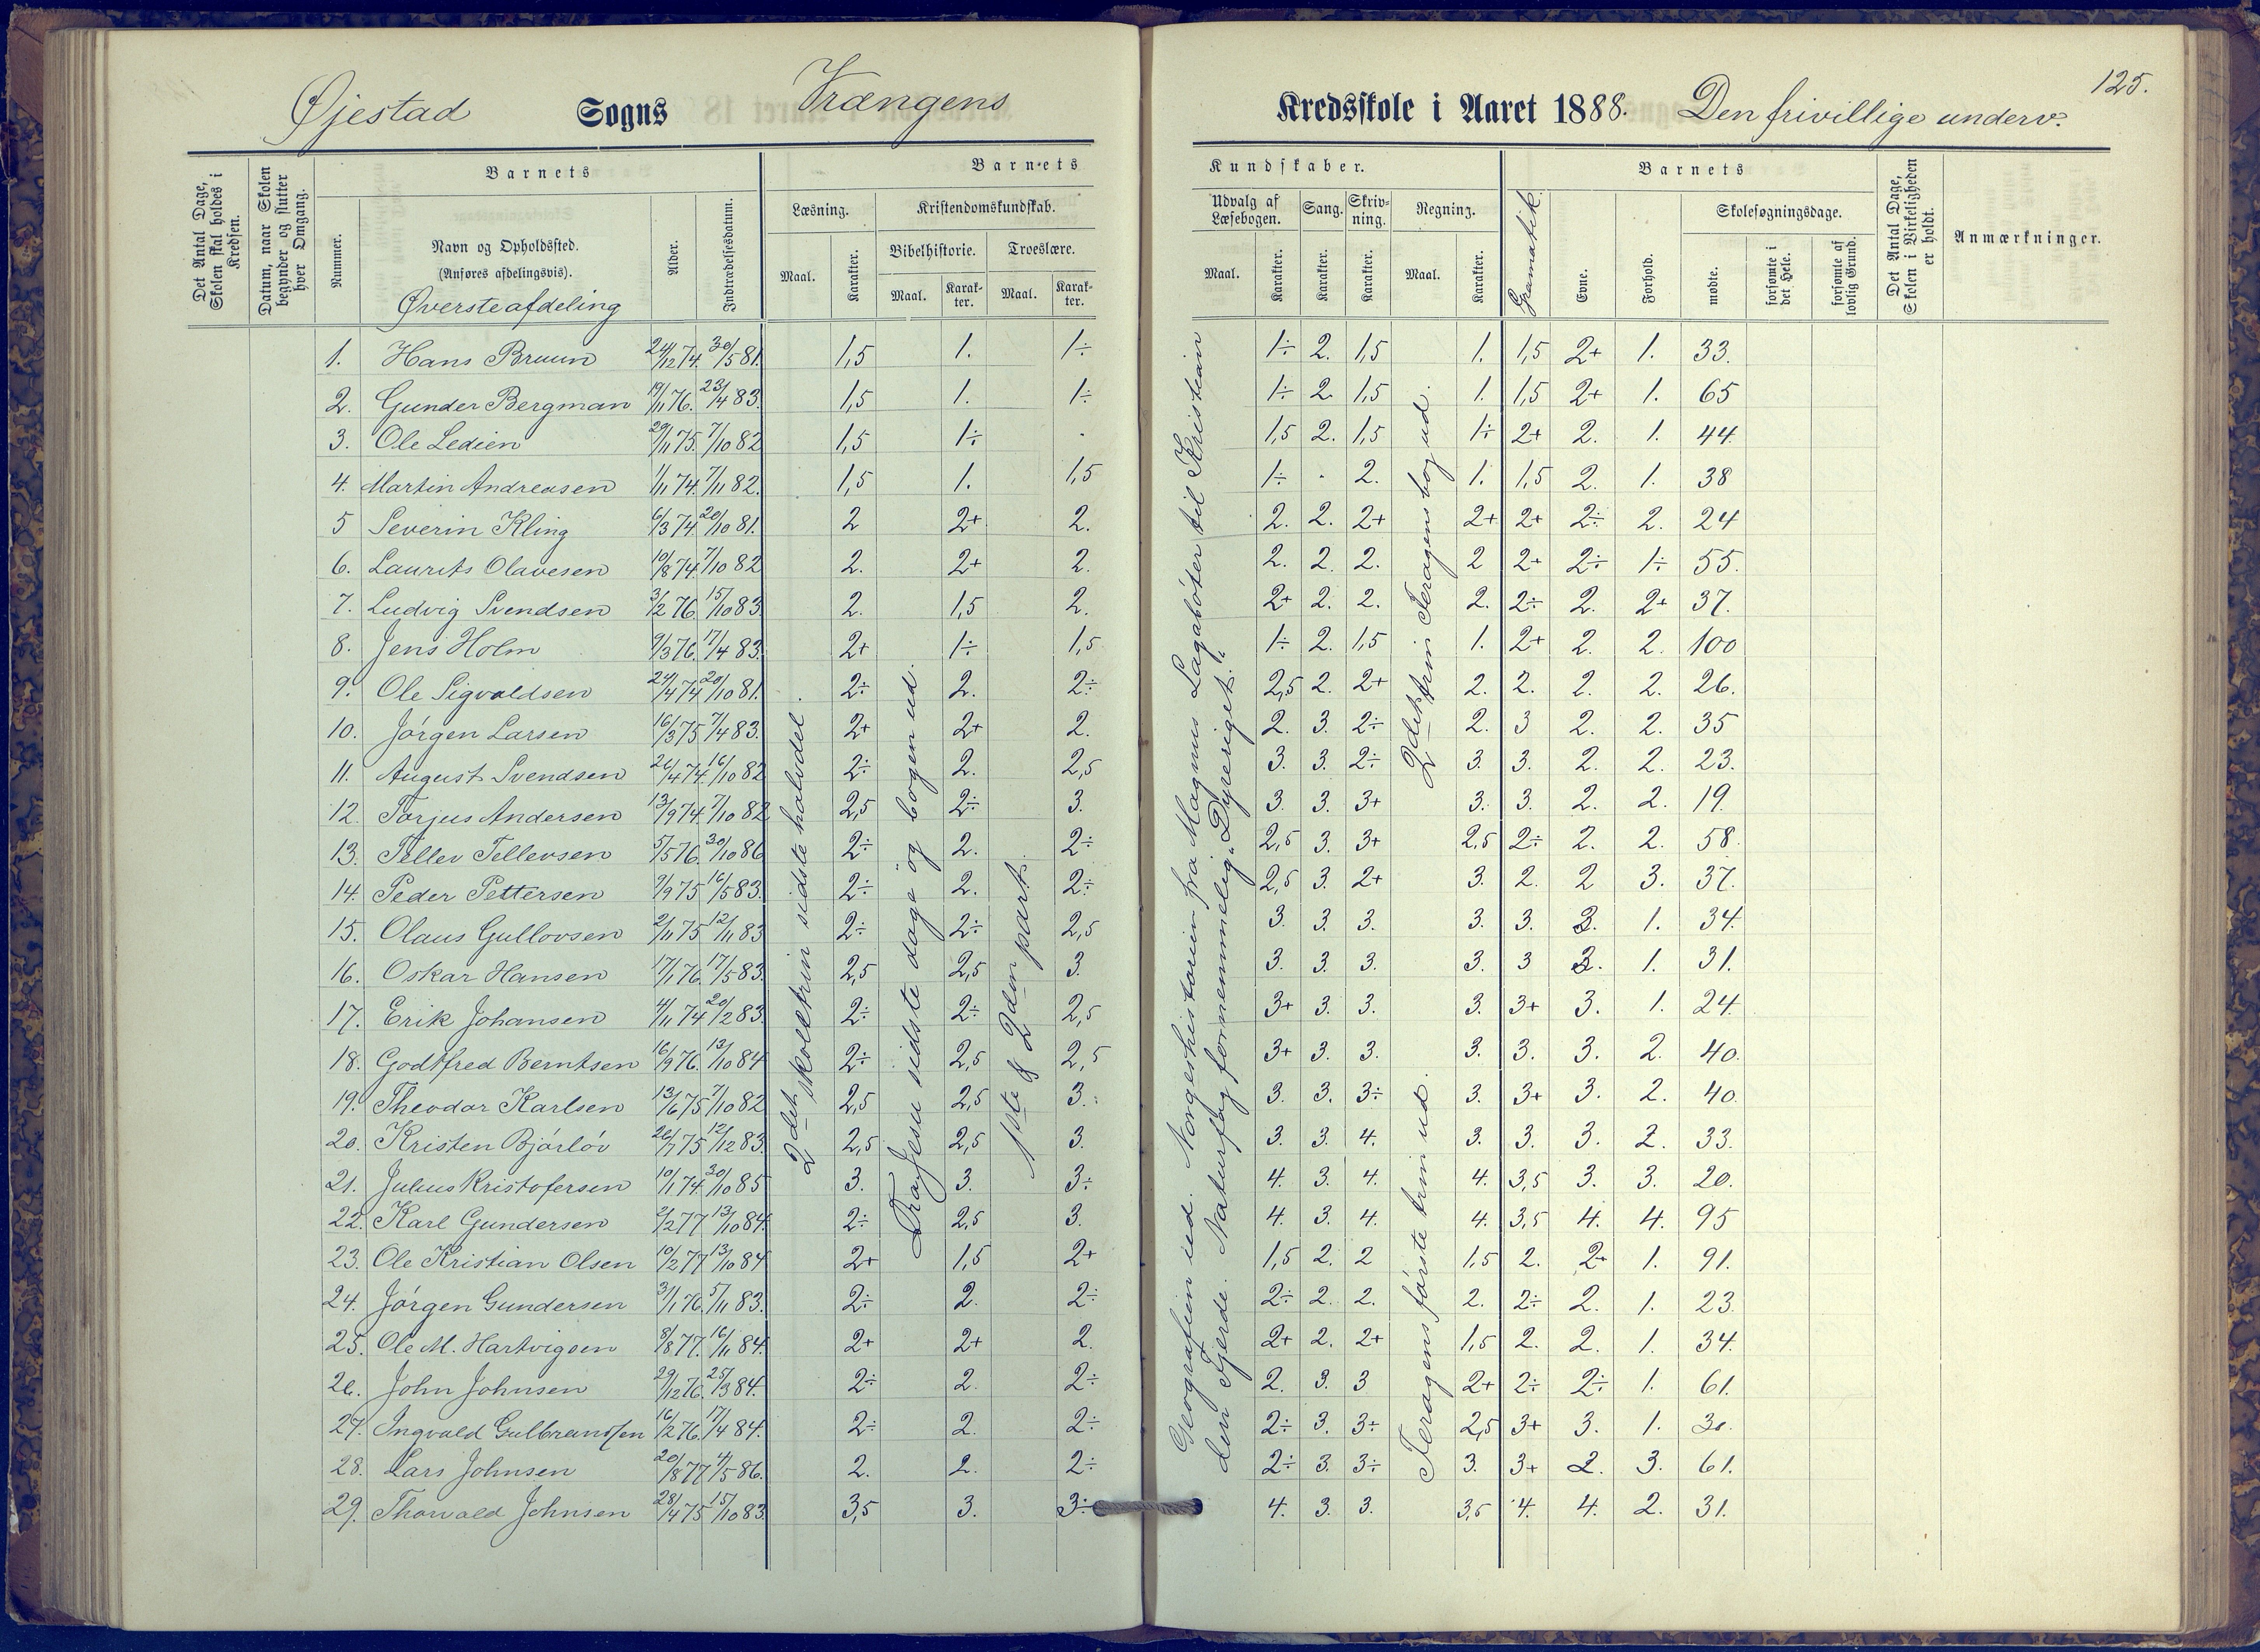 125.
Øjestad Sogns Vrængens Kredsskole i Aaret 1888. Den frivillige underv.
Det Antal Dage, Skolen skal holdes i Kredsen.
Datum, naar Skolen begynder og slutter hver Omgang.
Barnets
Nummer.
Navn og Opholdssted.
(Anføres afdelingsvis).
Øverste afdeling
Alder.
Indtrædelsesdatum.
Barnets Kundskaber.
Læsning. Kristendomskundskab.
Maal. Karakter.
Bibelhistorie. Troeslære.
Maal. Karakter. Maal. Karakter.
Udvalg af Læsebogen. Sang. Skrivning. Regning.
Maal. Karakter. Karakter. Karakter. Maal. Karakter.
Gramatik.
Barnets
Evne. Forhold.
Skolesøgningsdage.
mødte. forsømte i det Hele. forsømte af lovlig Grund.
Det Antal Dage, Skolen i Virkeligheden er holdt.
Anmærkninger.
1. Hans Bruun 24/12 74. 30/5 81. 1,5 1. 1÷ 1÷ 2. 1,5 1. 1,5 2+ 1. 33.
2. Gunder Bergman 19/11 76. 23/4 83. 1,5 1. 1÷ 1÷ 2. 1,5 1. 1,5 2+ 1. 65
3. Ole Ledien 29/11 75. 7/10 82 1,5 1÷ . 1,5 2. 1,5 1÷ 2+ 2. 1. 44.
4. Martin Andreasen 1/11 74. 7/11 82. 1,5 1. 1,5 1÷ . 2. 1. 1,5 2. 1. 38
5 Severin Kling 6/3 74. 20/10 81. 2 2+ 2. 2. 2. 2+ 2+ 2+ 2÷ 2. 24
6. Laurits Olavesen 10/8 74. 7/10 82 2. 2+ 2. 2. 2. 2. 2 2+ 2÷ 1÷ 55.
7. Ludvig Svendsen 3/2 76. 15/10 83 2. 1,5 2. 2+ 2. 2. 2. 2÷ 2. 2+ 37.
8. Jens Holm 9/3 76. 17/4 83. 2+ 1÷ 1,5 1÷ 2. 1,5 1. 2+ 2. 2. 100
9. Ole Sigvaldsen 24/4 74. 20/10 81. 2÷ 2. 2÷ 2,5 2. 2+ 2. 2. 2. 2. 26.
10. Jørgen Larsen 16/3 75 7/4 83. 2+ 2+ 2. 2. 3. 2÷ 2. 3 2. 2. 35
11. August Svendsen 26/4 74. 16/10 82 2÷ 2. 2,5 3. 3. 2÷ 3. 3. 2. 2. 23.
12. Torjus Andersen 13/9 74. 7/10 82 2,5 2÷ 3. 3. 3. 3+ 3. 3. 2. 2. 19.
13. Tellev Tellevsen 5/5 76. 30/10 86 2÷ 2. 2÷ 2,5 3. 3+ 2,5 2÷ 2. 2. 58.
14. Peder Pettersen 9/9 75 16/5 83. 2÷ 2. 2÷ 2,5 3. 2+ 3. 2. 2 3. 37.
15. Olaus Gullovsen 2/11 75 12/11 83 2÷ 2÷ 2,5 3. 3. 3. 3. 3. 3. 1. 34.
16. Oskar Hansen 17/1 76. 17/5 83. 2,5 2,5 3. 3. 3. 3. 3. 3 3. 1. 31.
17. Erik Johansen 4/11 74 20/2 83. 2÷ 2÷ 2,5 3+ 3. 3. 3. 3+ 3. 1. 24.
18. Godtfred Berntsen 16/9 76. 13/10 84 2÷ 2,5 2,5 3+ 3. 3. 3. 3. 3. 2. 40.
19. Theodor Karlsen 13/6 75 7/10 82 2,5 2,5 3. 3. 3. 3÷ 3. 3+ 3. 2. 40.
20. Kristen Bjørløv 26/7 75 12/12 83. 2,5 2,5 3. 3. 3. 4. 3. 3. 3. 2. 33.
21. Julius Kristofersen 10/1 74. 30/10 85 3. 3. 3÷ 4. 3. 4. 4. 3,5 3. 3. 20.
22. Karl Gundersen 2/2 77 13/10 84. 2÷ 2,5 3. 4. 3. 4. 4. 3,5 4. 4. 95
23. Ole Kristian Olsen 10/2 77 13/10 84 2+ 1,5 2+ 1,5 2. 2 1,5 2. 2+ 1. 91.
24. Jørgen Gundersen 31/1 76. 5/11 83. 2÷ 2. 2÷ 2÷ 2. 2. 2. 2÷ 2. 1. 23.
25. Ole M. Hartvigsen 8/8 77. 16/11 84. 2+ 2+ 2. 2+ 2. 2+ 1,5 2. 2. 1. 34.
26. John Johnsen 29/12 76. 25/3 84. 2÷ 2. 2÷ 2. 3. 3 2+ 2÷ 2÷ 1. 61.
27. Ingvald Gulbrandsen 16/2 76. 17/4 84. 2÷ 2. 2÷ 2÷ 3. 3÷ 2,5 3+ 3. 1. 30.
28. Lars Johnsen 20/8 77 4/5 86. 2. 2. 2÷ 2÷ 3. 3÷ 3. 3+ 2. 3. 61.
29. Thorvald Johnsen 28/4 75 15/10 83. 3,5 3. 3÷ 4. 3. 3. 3,5 4. 4. 2. 31.
2det skoletrin sidste halvdel.
Fra Jesu sidste dage og bogen ud.
1ste & 2den part.
Geografien ud. Norgeshistorien fra Magnus Lagabøter til Kristian
den Fjerde. Naturfag fornemmelig "Dyreriget."
2det trin Feragens bog ud.
Feragens første trin ud.